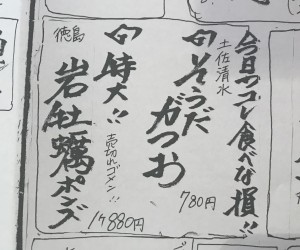 今日コレ食べな損!!
土佐清水
旬そうだがつお
780円
旬特大!!
売切れゴメン!!
徳島
岩牡蠣ポンズ
1ケ880円